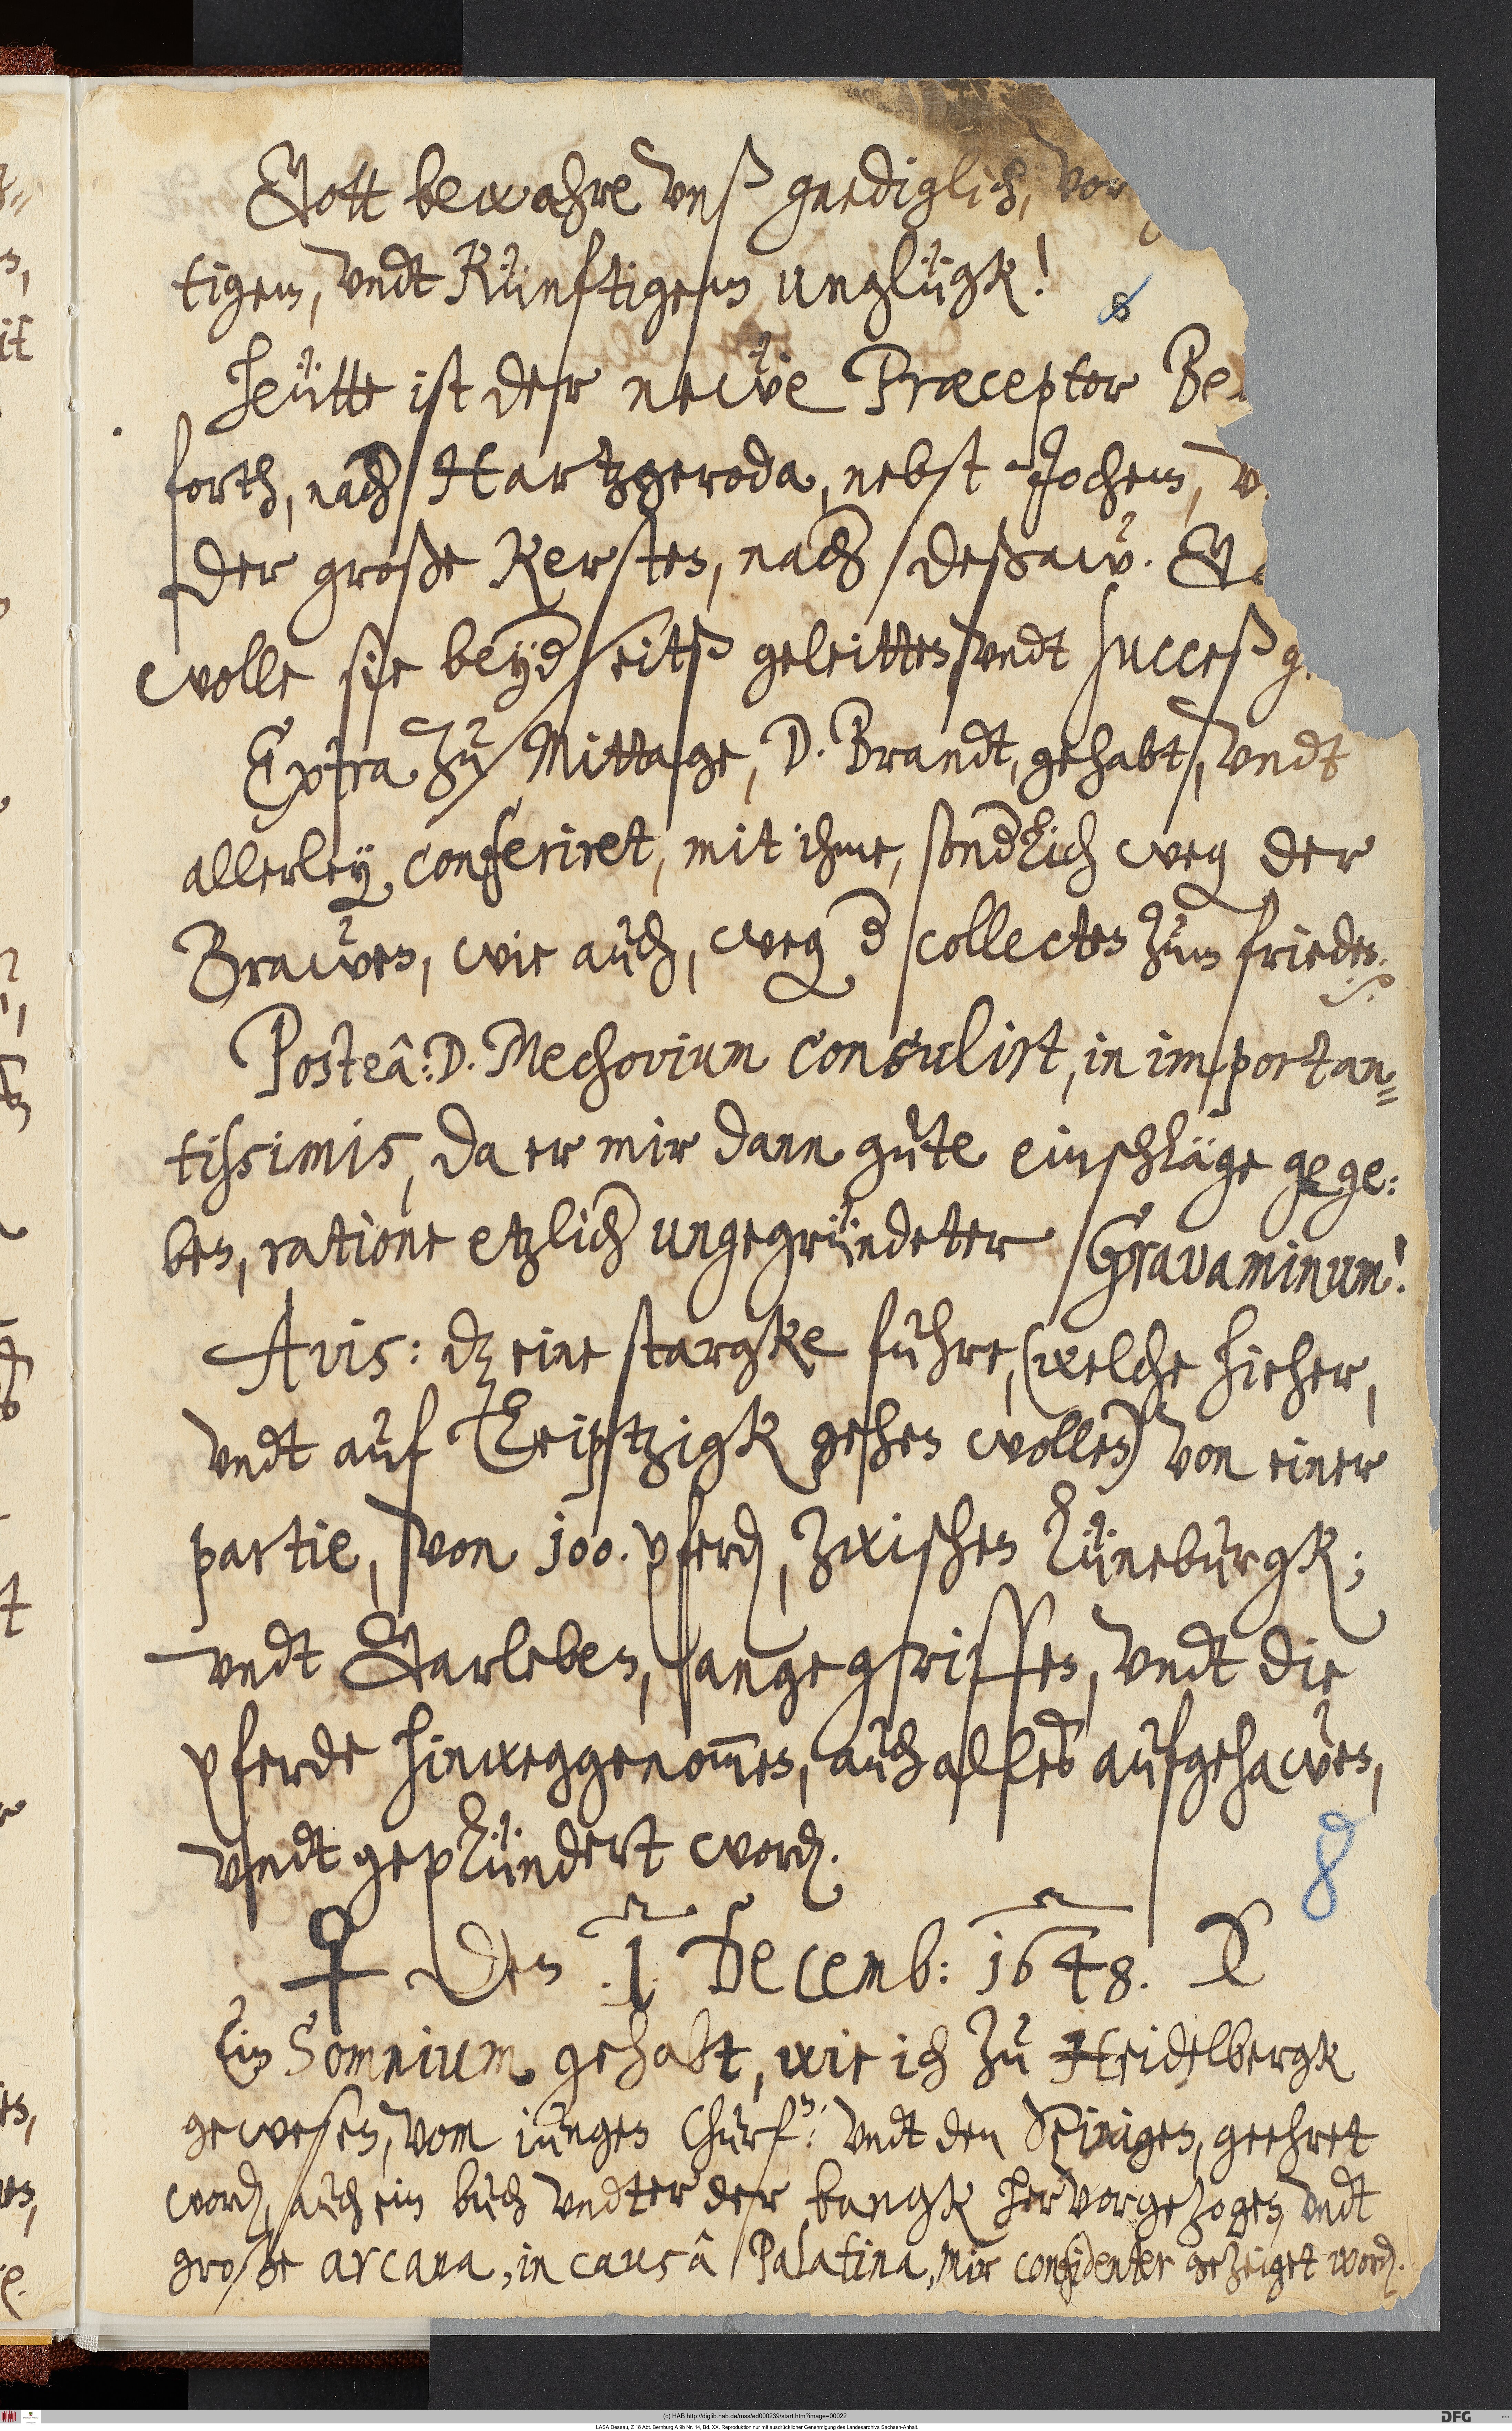 Gott bewahre vnß gnediglich, vor
tigem, vndt Künftigem unglügk!
Heütte ist der newe Præceptor Be
forth, nach Hartzgeroda, nebst Jochem, v
der große Kersten, nach Deßaw. G
wolle sie beyderseitß geleitten, vndt succeß g
Extra zu Mittage, D. Brandt, gehabt, vndt
allerley conferiret, mit ihme, sonderlich weg der
Brawen, wie auch, weg der collecten zum frieden.
Posteâ: D. Mechovium consulirt, in importan=
tissimis, da er mir dann gute einschläge gege:
ben, ratione etzlicher ungegründeter Gravaminum!
Avis: dz eine stargke fuhre, (welche hieher,
vndt auf Leiptzigk gehen wollen) von einer
partie, von 100. pferden, zwischen Lüneburgk;
vndt Garleben, angegriffen, vndt die
pferde hinweggenom̅en, auch alles aufgehawen,
vndt geplündert worden.
8
♀ Den 1. Decemb: 1648.
Ein Somnium gehabt, wie ich zu Heidelbergk
gewesen, vom iungen Churf: vndt den Seinigen, geehret
worden, auch ein buch vndter der bangk hervorgezogen, vndt
große arcana, in causâ Palatina, mir confidenter gezeiget worden.
(c) HAB http://diglib.hab.de/mss/ed000239/start.htm?image=00022
DFG
LASA Dessau, Z 18 Abt. Bernburg A 9b Nr. 14, Bd. XX. Reproduktion nur mit ausdrücklicher Genehmigung des Landesarchivs Sachsen-Anhalt.